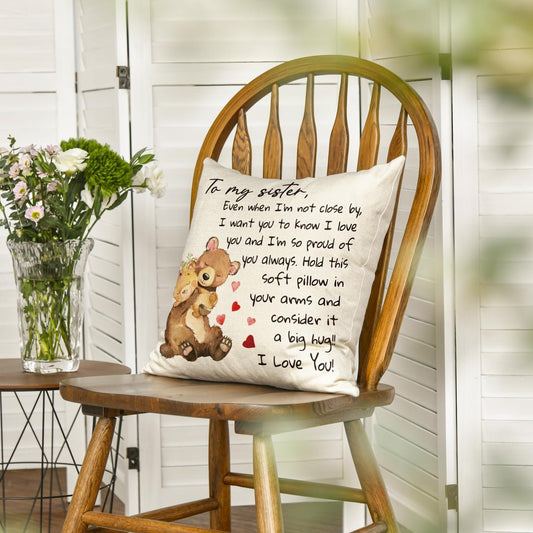 To my sister,
Even when I'm not close by,
I want you to know I love
you and I'm so proud of
you always. Hold this
soft pillow in
your arms and
consider it
a big hug!!
I Love You!